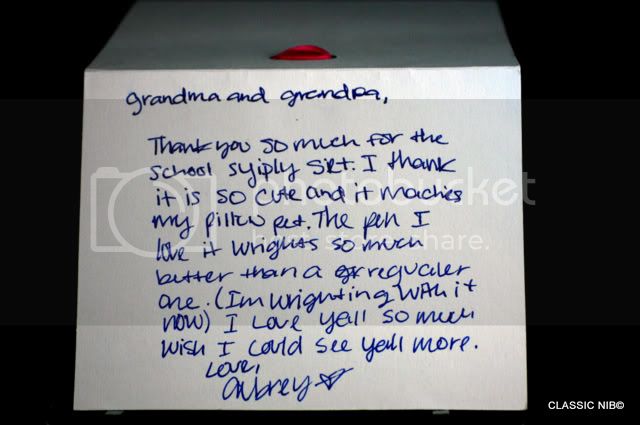 grandma and grandpa,
Thank you so much for the
school syiply set. I thank
it is so cute and it maches
my pillow pet. The pen I
love it wrights so much
better than a regualer
one. (Im wrighting with it
now) I Love yall so much
wish I could see yall more.
Love,
Aubrey
photobucket
host. store. share.
CLASSIC NIB©